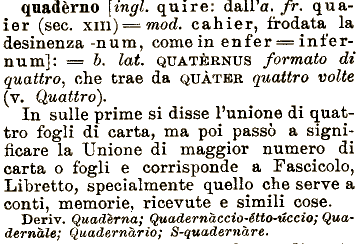 quadèrno [ingl. quire: dall'a. fr. qua-
ier (sec. XIII)=mod. cahier, frodata la
desinenza -num, come in enfer=infer-
num]: = b. lat. QUATÈRNUS formato di
quattro, che trae da QUÀTER quattro volte
(v. Quattro).
In sulle prime si disse l'unione di quat-
tro fogli di carta, ma poi passò a signi-
ficare la Unione di maggior numero di
carta o fogli e corrisponde a Fascicolo,
Libretto, specialmente quello che serve a
conti, memorie, ricevute e simili cose.
Deriv. Quadèrna; Quadernàccio-étto-úccio; Qua-
dernàle; Quadernàrio; S-quadernàre.